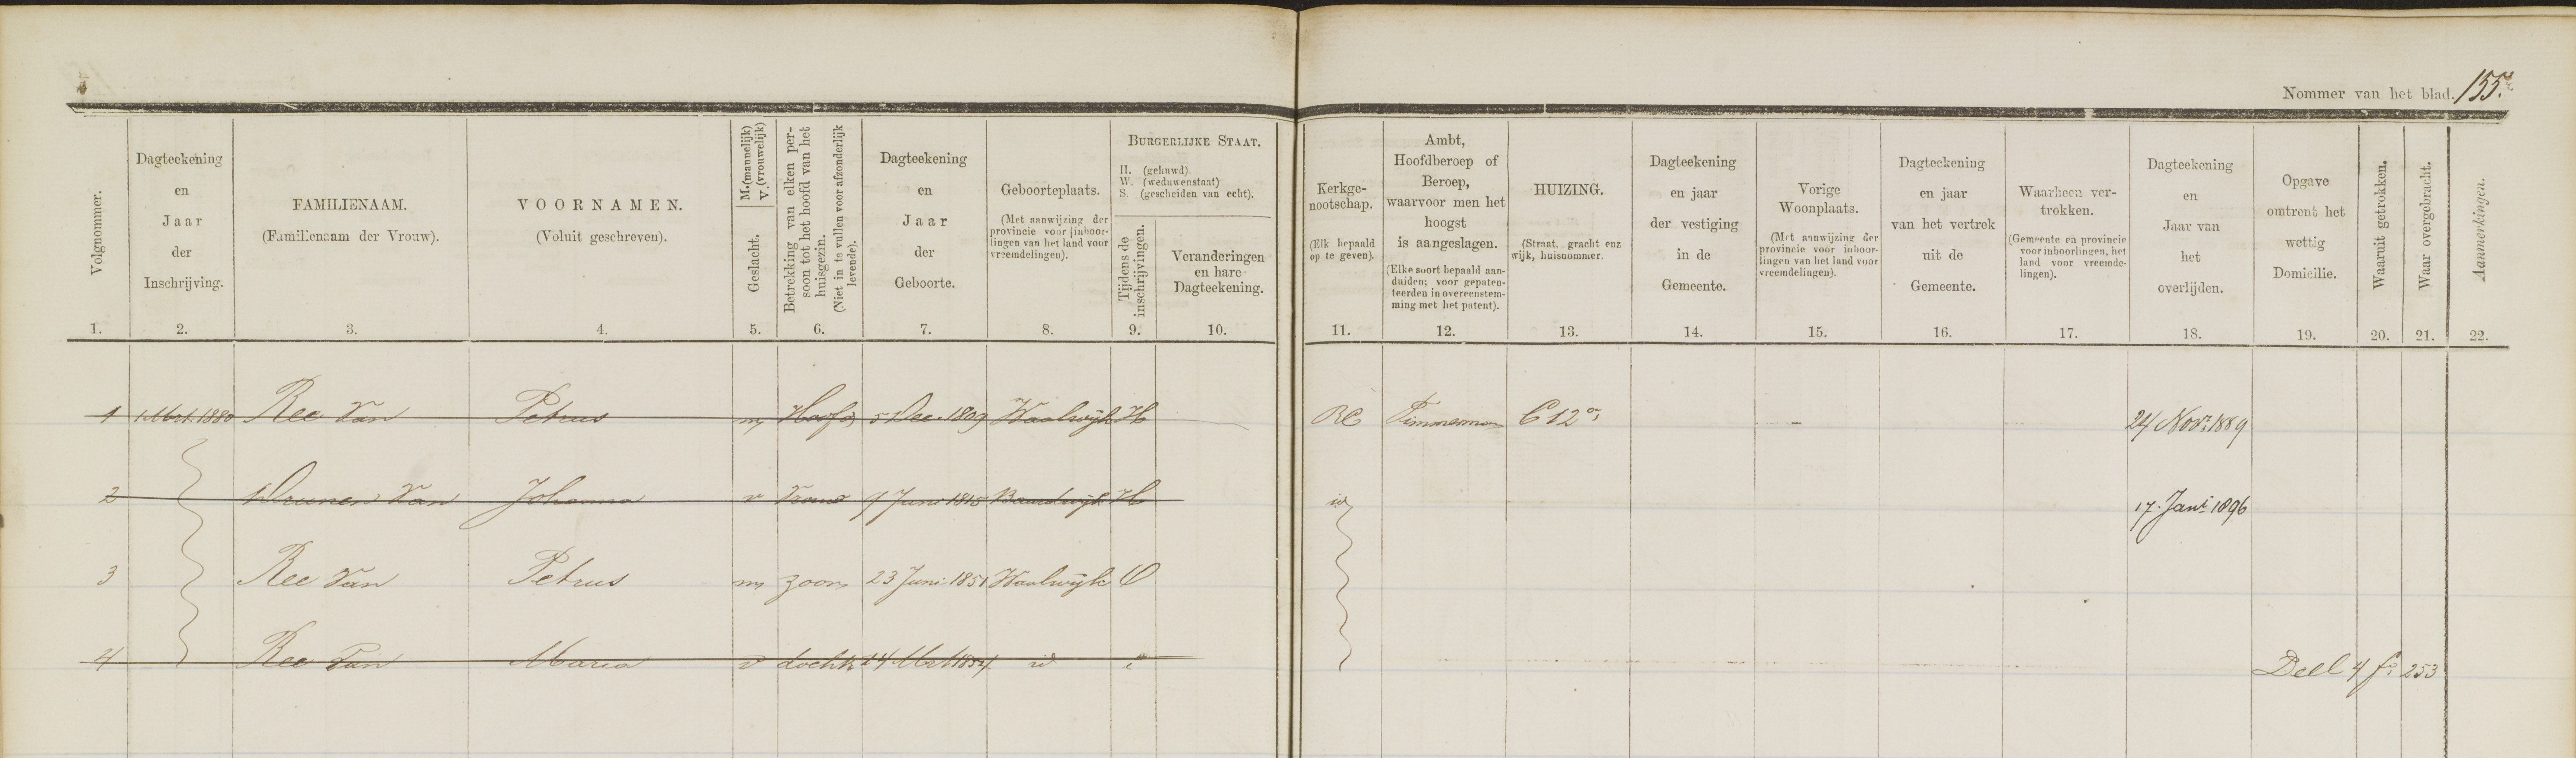 Nommer van het blad. 155.
Volgnommer.
1.
Dagteekening
en
Jaar
der
Inschrijving.
2.
FAMILIENAAM.
(Familienaam der Vrouw).
3.
VOORNAMEN.
(Voluit geschreven).
4.
M. (mannelijk)
V. (vrouwelijk)
Geslacht.
5.
Betrekking van elken per-
soon tot het hoofd van het
huisgezin.
(Niet in te vullen voor afzonderlijk
levende).
6.
Dagteekening
en
Jaar
der
Geboorte.
7.
Geboorteplaats.
(Met aanwijzing der
provincie voor inboor-
lingen van het land voor
vreemdelingen).
8.
BURGERLIJKE STAAT.
H. (gehuwd).
W. (weduwenstaat)
S. (gescheiden van echt).
Tijdens de
inschrijvingen.
9.
Veranderingen
en hare
Dagteekening.
10.
Kerkge-
nootschap.
(Elk bepaald
op te geven).
11.
Ambt,
Hoofdberoep of
Beroep,
waarvoor men het
hoogst
is aangeslagen.
(Elke soort bepaald aan-
duiden; voor gepaten-
teerden in overeenstem-
ming met het patent).
12.
HUIZING.
(Straat, gracht enz
wijk, huisnommer.
13.
Dagteekening
en jaar
der vestiging
in de
Gemeente.
14.
Vorige
Woonplaats.
(Met aanwijzing der
provincie voor inboor-
lingen van het land voor
vreemdelingen).
15.
Dagteekening
en jaar
van het vertrek
uit de
Gemeente.
16.
Waarheen ver-
trokken.
(Gemeente en provincie
voor inboorlingen, het
land voor vreemde-
lingen).
17.
Dagteekening
en
Jaar van
het
overlijden.
18.
Opgave
omtrent het
wettig
Domicilie.
19.
Waaruit getrokken.
20.
Waar overgebracht.
21.
Aanmerkingen.
22.
1 1 Mrt. 1880 Ree Van Petrus m Hoofd 5 Dec. 1809 Waalwijk H RC Timmerman C 12 24 Novr. 1889
2 Drunen Van Johanna v Vrouw 7 Juni 1815 Baardwijk H id 17. Janr. 1896
3 Ree Van Petrus m zoon 23 Juni 1851 Waalwijk O
4 Ree Van Maria v docht 14 Mrt 1854 id i Deel 4 fo 253